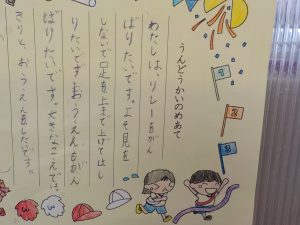 うんどうかいのめあて
わたしは、リレーをがん
ばりたいです。よそ見を
しないで口正を上まで上げてはし
りたいです。おうえんもがん
ばりたいです。大きなこえで、
きりと、おうえんをしたいです。
1
2
3